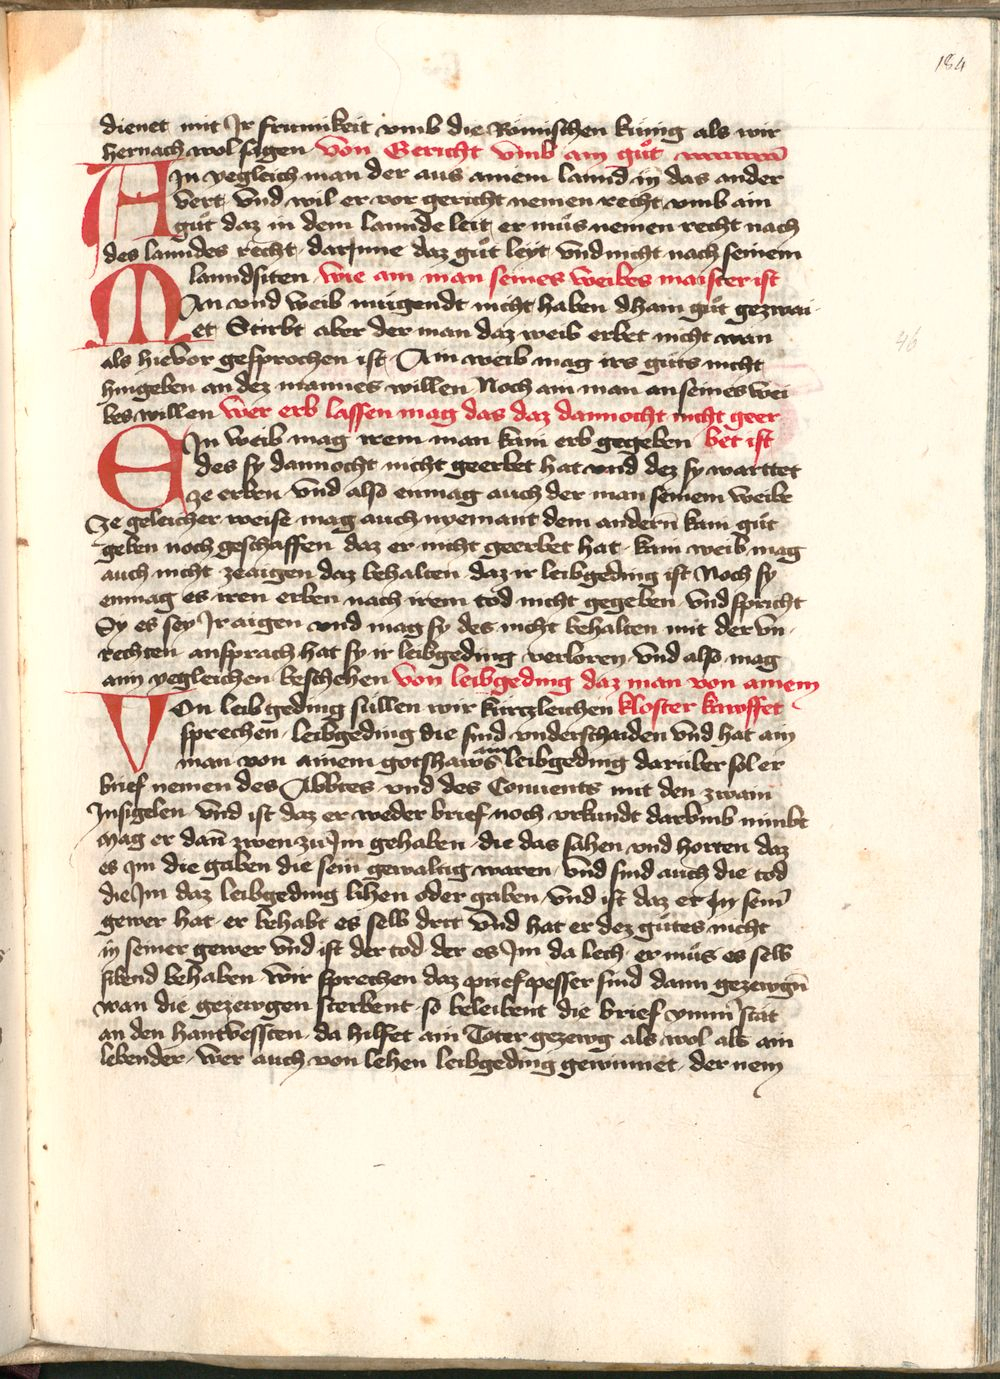 184
dienet mit Ir frumikeit vmb die Römischen künig als wir
hernach wol sagen von Gericht vmb ain gůt
AIn yegleich man der aus ainem lannd in das ander
vert vnd wil er vor gericht nemen recht vmb ain
gůt daz in dem lannde leit er můs nemen recht nach
des lanndes recht darInne daz gůt leyt vnd nicht nach seinem
lanndsiten wie ain man seines weibes maister ist
MAn vnd weib mügendt nicht haben dhain gůt gezwai
et Stirbt aber der man daz weib erbet nicht wan
als hieVor gesprochen ist Ain weib mag irs gůts nicht
hingeben an dez mannes willen Noch ain man an seines wei
bes willen wer erb lassen mag das daz dannocht nicht geer
EIn weib mag irem man kain erb gegeben bet ist
des sy dannocht nicht geerbet hat vnd dez sy warttet
ze erben vnd also enmag auch der man seinem weibe
Ze geleicher weise mag auch nyemant dem andern̄ kain gůt
geben noch geschaffen daz er nicht geerbet hat kain weib mag
auch nicht zeaigen daz behalten daz ir leibgeding ist Noch sy
enmag es iren erben nach irem tod nicht gegeben vnd spricht
Sy es sey Ir aigen vnd mag sy des nicht behalten mit der vn
rechten ansprach hat sy ir leibgeding verloren vnd also mag
ainn yegleichen beschehen von leibgeding daz man von ainem
VOn leibgeding süllen wir kurtzleichen kloster kawffet
sprechen leibgeding die sind vnderschaiden vnd hat ain
man von ainem gotshaws ain leibgeding darüber sol er
brief nemen des Abbtes vnd des Conuents mit den zwain
Insigelen vnd ist daz er weder brief noch vrkundt darvmb nimbt
mag er dan̄ zwen zu Im gehaben die das sahen vnd horten daz
es Im die gaben die sein gewaltig waren vnd sind auch die tod
die Im daz leibgeding lihen oder gaben vnd ist daz er In sein̄
gewer hat er behabt es selb drit vnd hat er dez gůtes nicht
in seiner gewer vnd ist der tod der es Im da lech er můs es selb
sibend behaben wir sprechen daz prief pesser sind dann gezewgn̄
wan die gezewgen sterbent so beleibent die brief ymm̄ stät
an den hantVessten da hilfet ain Toter gezewg als wol als ain
lebender wer auch von lehen leibgeding gewinnet der nem